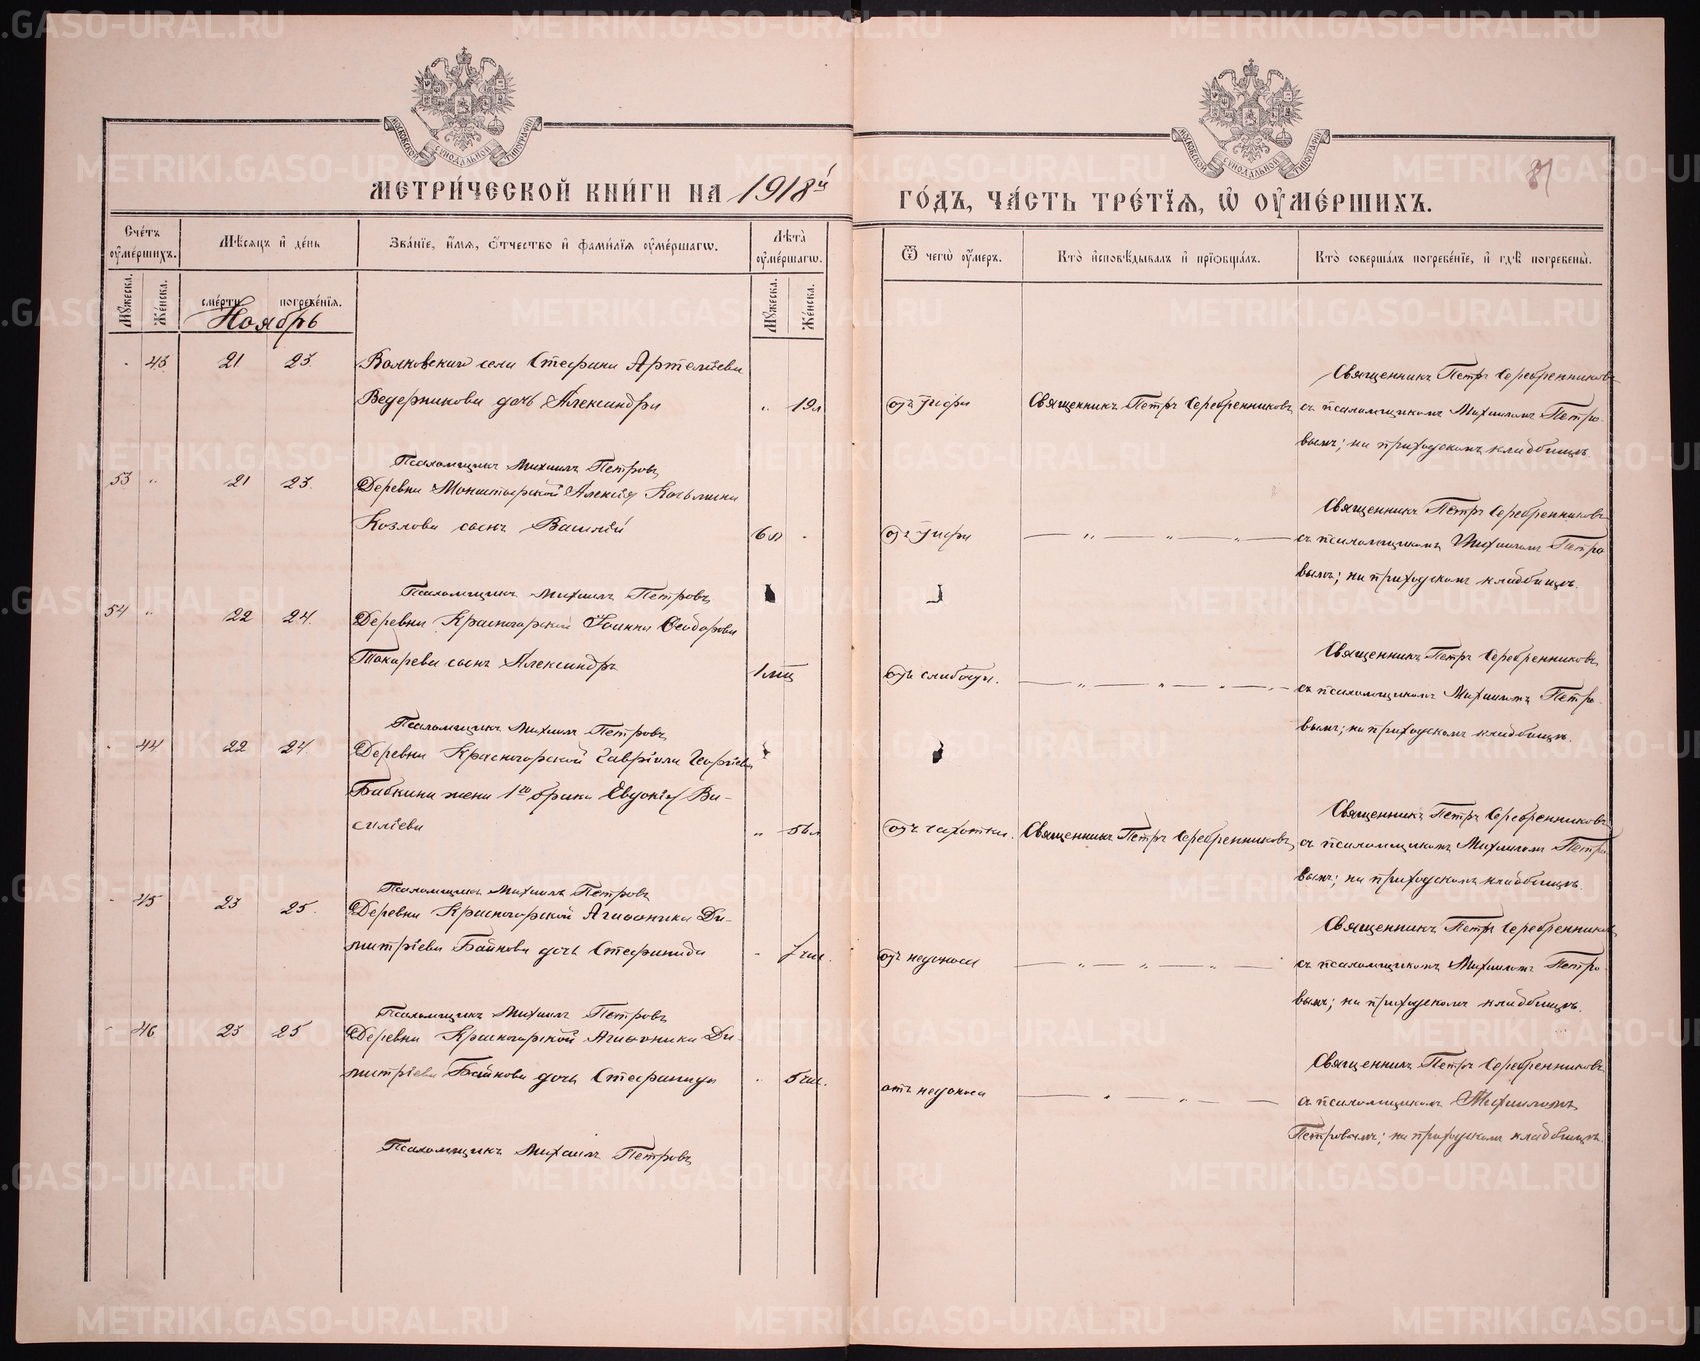 МОСКОВСКОЙ СѴНОДАЛЬНОЙ ТИПОГРАФІИ
МОСКОВСКОЙ СѴНОДАЛЬНОЙ ТИПОГРАФІИ
МЕТРИ́ЧЕСКОЙ КНИ́ГИ НА 1918й
ГО́ДЪ, ЧА́СТЬ ТРЕ́ТЇѦ, Ѡ҆ ОУ҆МЕ́РШИХЪ.
81
Сче́тъ оу҆ме́ршихъ.
Мѣ́сяцъ и҆ де́нь
Зва́нїе, и҆́мѧ, ѻ҆́тчество и҆ фамилїѧ оу҆ме́ршагѡ.
Лѣ́та оу҆ме́ршагѡ.
Ѿ чегѡ̀ оу҆́меръ.
Кто̀ и҆сповѣ́дывалъ и҆ прїѡбща́лъ.
Кто̀ соверша́лъ погребе́нїе, и҆ гдѣ̀ погребены̀.
Мꙋ́жеска. Же́нска. сме́рти погребе́нїя. Мꙋ́жеска. Же́нска.
Ноябрь
- 43 21 23. Волковскаго села Стефана Артемiева
Ведерникова дочь Александра „ 19 л
отъ тифа
Священникъ Петръ Серебренниковъ
Священникъ Петръ Серебренниковъ
съ псаломщикомъ Михаиломъ Петро-
вымъ; на приходскомъ кладбищѣ.
Псаломщикъ Михаилъ Петровъ
53 „ 21 23. Деревни Монастырской Алексiя Косьмина
Козлова сынъ Василiй 6 л -
отъ тифа
— „ — „ — „ —
Священникъ Петръ Серебренниковъ
съ псаломщикомъ Михаиломъ Петро-
вымъ; на приходскомъ кладбищѣ.
Псаломщикъ Михаилъ Петровъ
54 „ 22 24. Деревни Красногорской Iоанна Ѳеодорова
Токарева сынъ Александръ 1 мѣс
отъ слабости.
— „ — „ — „ —
Священникъ Петръ Серебренниковъ
съ псаломщикомъ Михаиломъ Петро-
вымъ; на приходскомъ кладбищѣ.
Псаломщикъ Михаилъ Петровъ
- 44 22 24. Деревни Красногорской Гаврiила Георгiева
Бабкина жена 1го брака Евдокiя Ва-
силiева „ 56 л
отъ чахотки.
Священникъ Петръ Серебренниковъ
Священникъ Петръ Серебренниковъ
съ псаломщикомъ Михаиломъ Петро-
вымъ; на приходскомъ кладбищѣ.
Псаломщикъ Михаилъ Петровъ
- 45 23 25. Деревни Красногорской Агафоника Ди-
митрiева Байнова дочь Стефанида - 7 час.
отъ недоноса
— „ — „ — „ —
Священникъ Петръ Серебренниковъ
съ псаломщикомъ Михаиломъ Петро-
вымъ; на приходскомъ кладбищѣ.
Псаломщикъ Михаилъ Петровъ
- 46 23 25 Деревни Красногорской Агафоника Ди-
митрiева Байнова дочь Стефанида - 5 час.
отъ недоноса
— „ — „ —
Священникъ Петръ Серебренниковъ
съ псаломщикомъ Михаиломъ
Петровымъ; на приходскомъ кладбищѣ.
Псаломщикъ Михаилъ Петровъ
METRIKI.GASO-URAL.RU